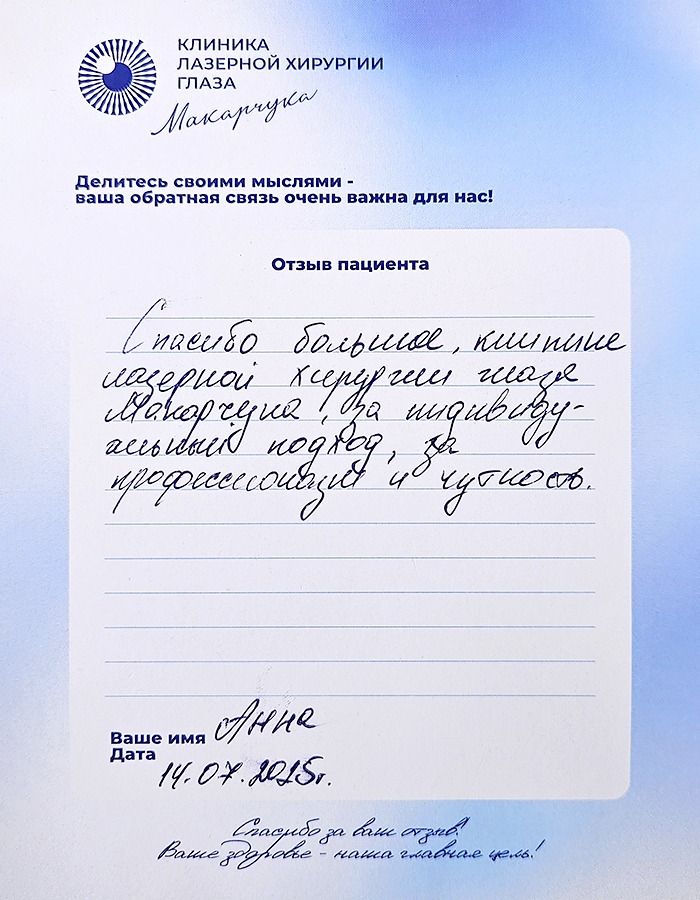 КЛИНИКА
ЛАЗЕРНОЙ ХИРУРГИИ
ГЛАЗА
Макарчука
Делитесь своими мыслями -
ваша обратная связь очень важна для нас!
Отзыв пациента
Спасибо большое, клинике
лазерной хирургии глаза
Макарчука, за индивиду-
альный подход, за
профессионализм и чуткость.
Ваше имя Анна
Дата
14.07.2025г.
Спасибо за ваш отзыв!
Ваше здоровье - наша главная цель!